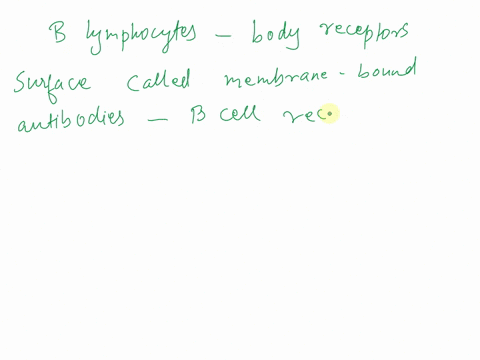 B lymphocytes – body receptors
Surface called membrane-bound
antibodies – B cell rec